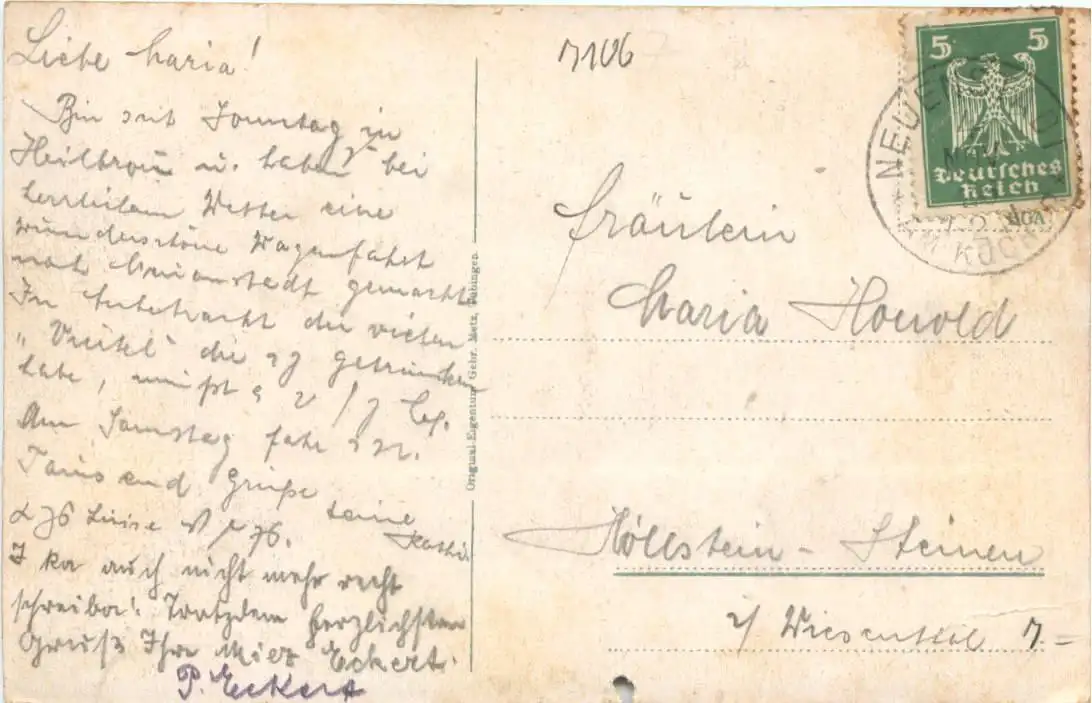 Liebe Maria!
Bin seit Sonntag in
Heilbronn u. haben bei
herrlichem Wetter eine
wunderschöne Wagenfahrt
nach Neuenstadt gemacht.
In Anbetracht der vielen
"Viertel" die ich getrunken
habe, mußt
Am Samstag fahr ich
Tausend Grüße Deine
Kathi.
I ka auch nicht mehr recht
schreiba! Trotzdem herzlichsten
Gruß Ihre Miez Eckert.
P. Eckert
Original-Eigentum Gebr. Metz, Tübingen.
7106
5 5
Deutsches
Reich
NEUEN
KOCHER
Fräulein
Maria Howold
Höllstein - Steinen
i/ Wiesenthal 7 =